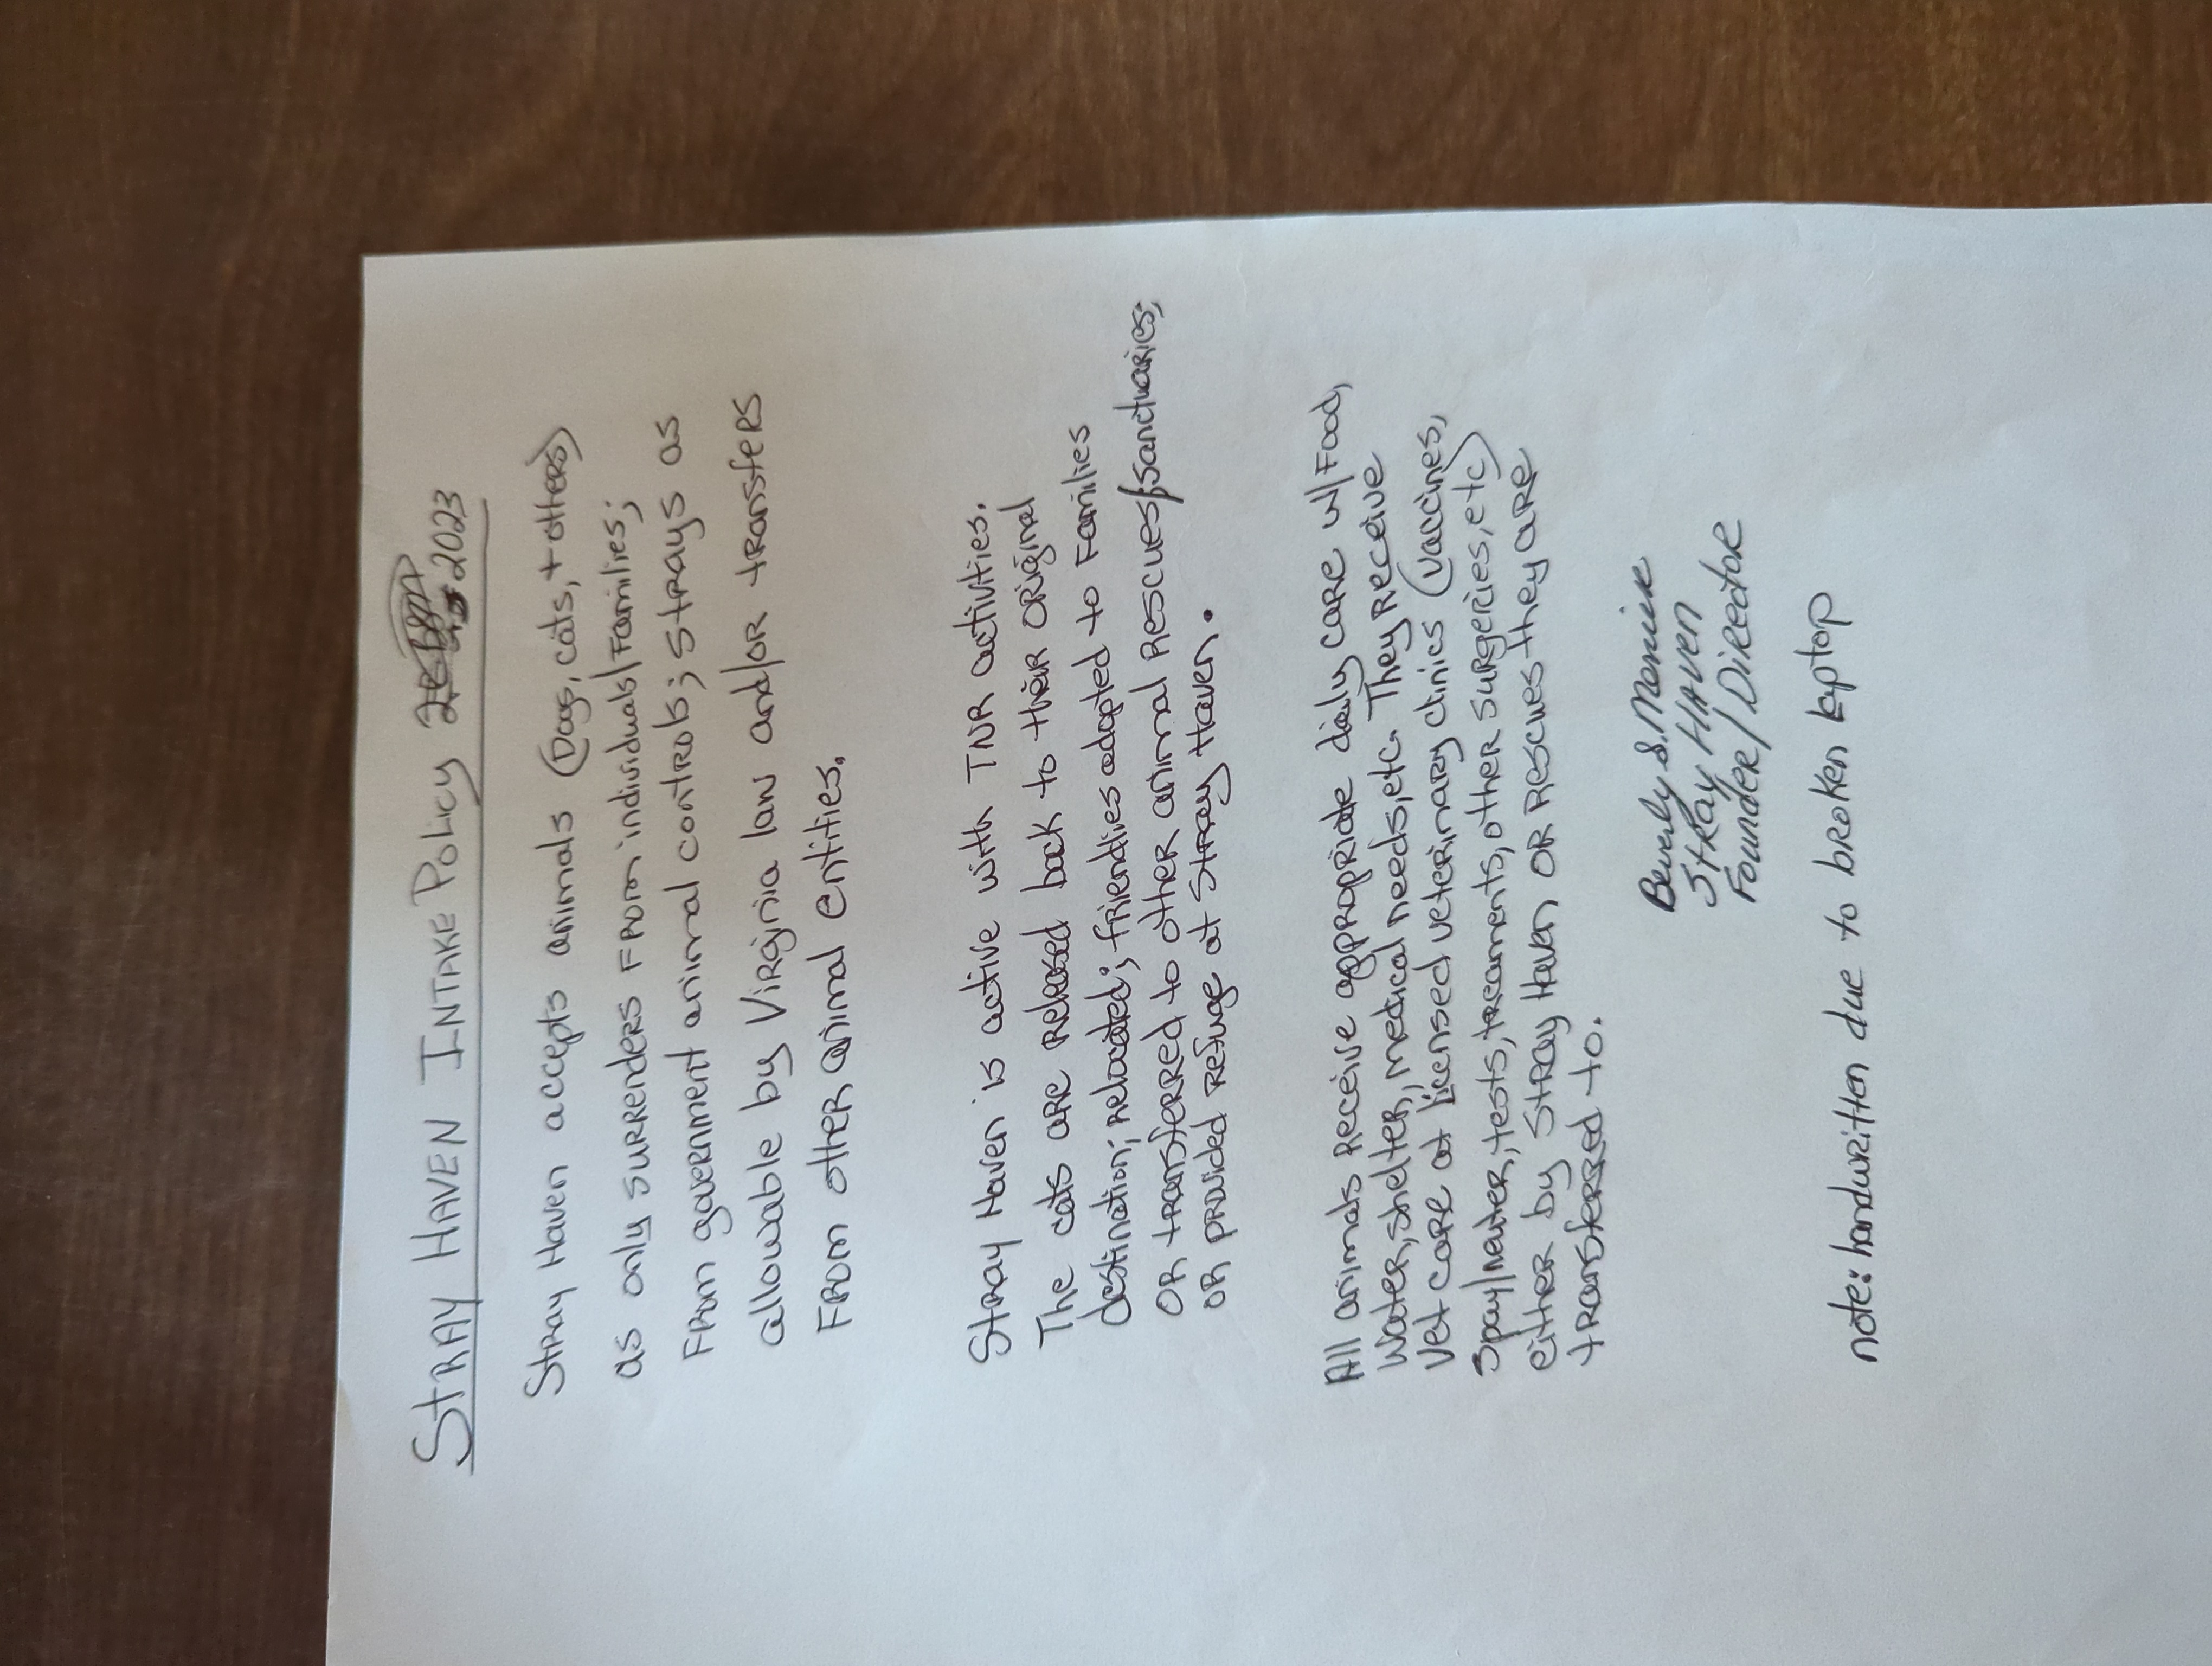 STRAY HAVEN INTAKE POLICY 2023
Stray Haven accepts animals (Dogs, cats, + others)
as only surrenders From individuals/Families;
From government animal controls; strays as
allowable by Virginia law and/or transfers
From other animal entities.
Stray Haven is active with TNR activities.
The cats are released back to their original
destination; relocated; friendlies adopted to Families
or transferred to other animal rescues/sanctuaries;
or provided refuge at Stray Haven.
All animals receive appropriate daily care w/Food,
water, shelter, medical needs, etc. They receive
vet care at licensed veterinary clinics (vaccines,
spay/neuter, tests, treaments, other surgeries, etc)
either by Stray Haven or rescues they are
transferred to.
Beverly S.
Stray Haven
Founder/Director
note: handwritten due to broken laptop